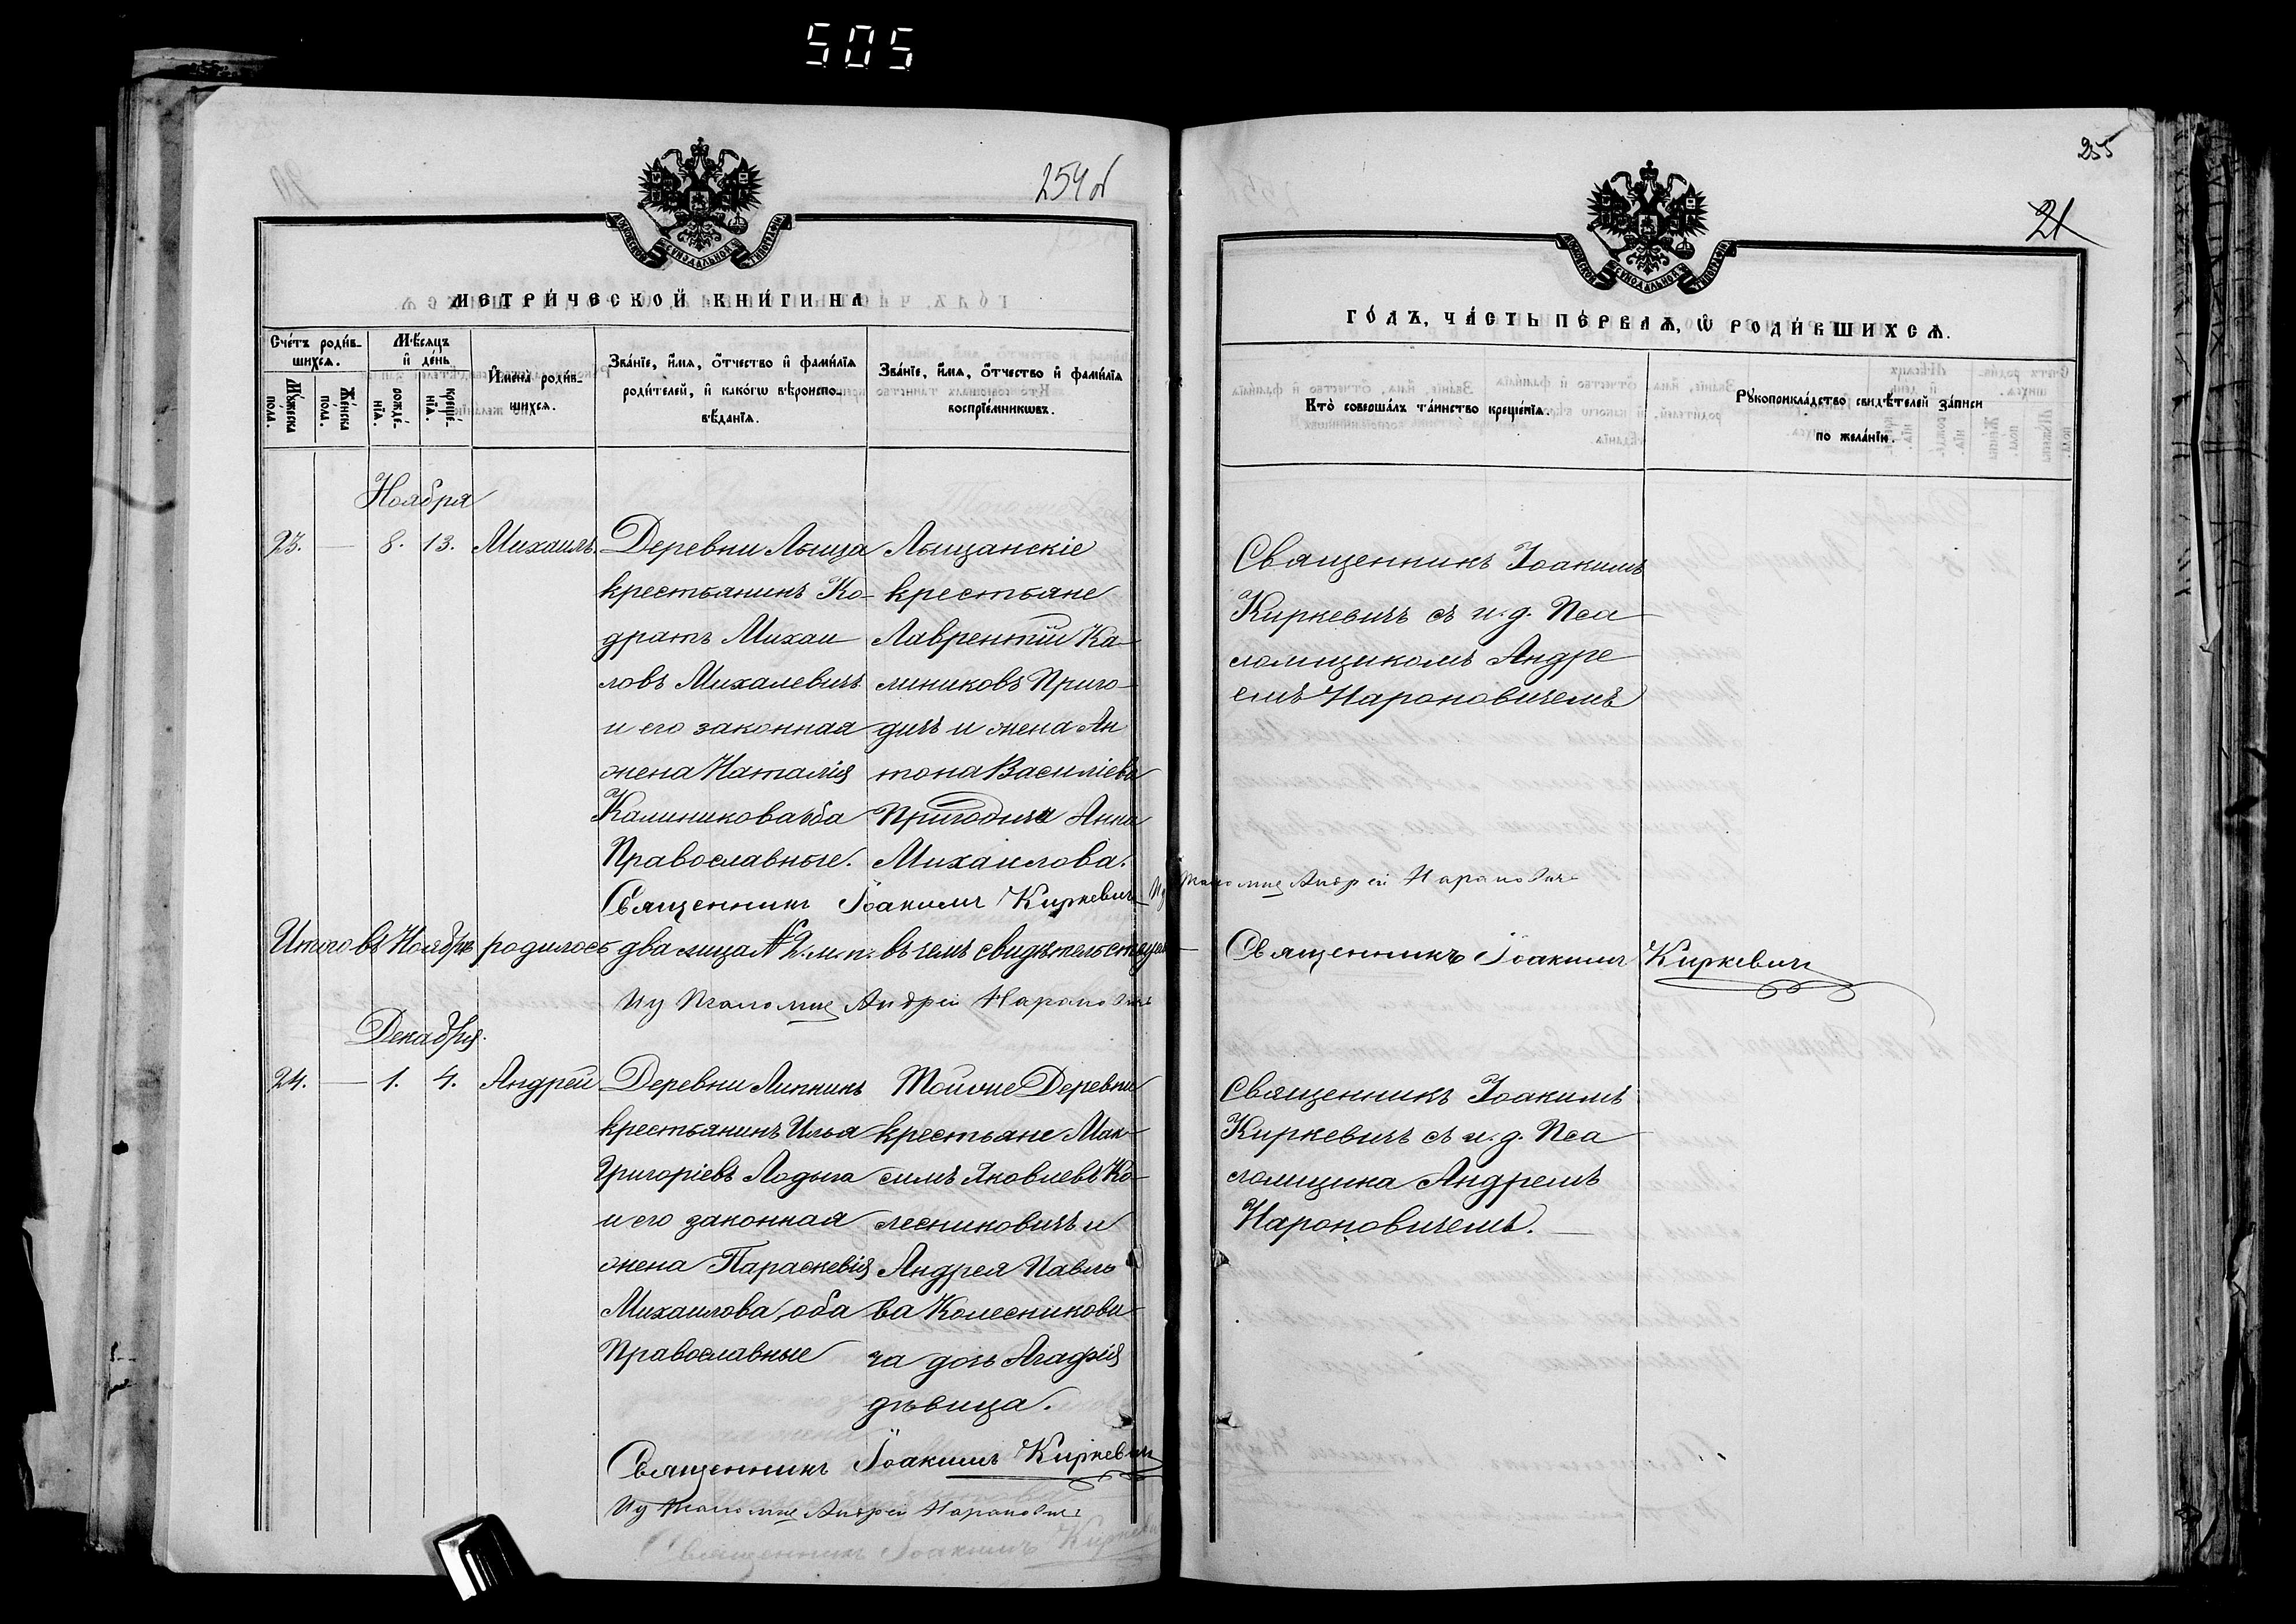 505
254 об
МОСКОВСКОЙ СѴНОДАЛЬНОЙ ТИПОГРАФІИ
МЕТРИ́ЧЕСКОЙ КНИ́ГИ НА
Сче́тъ роди́в-
шихсѧ.
Мꙋ́жеска
пола.
Же́нска
пола.
Мѣ́сѧцъ
и҆ де́нь
рожде́-
нїѧ.
креще́-
нїѧ.
И҆мена̀ роди́в-
шихсѧ.
Зва́нїе, и҆́мѧ, ѻ҆́тчество и҆ фами́лїѧ
роди́телей, и҆ како́гѡ вѣроиспо-
вѣ́данїѧ.
Зва́нїе, и҆́мѧ, ѻ҆́тчество и҆ фами́лїѧ
воспрїе́мникѡвъ.
Ноября
23. — 8. 13. Михаилъ.
Деревни Лыща
крестьянинъ Ко-
дратъ Михаи
ловъ Михалевичъ
и его законная
жена Наталія
Калиникова оба
Православные.
Лыщанскіе
крестьяне
Лаврентій Ка-
линиковъ Приго-
дичъ и жена Ан
тона Василіева
Пригодича Анна
Михаилова.
Священникъ Іоакимъ Киркевичъ
Иу Псаломщ Андрей Нароновичъ
Итого въ Ноябрѣ родилось два лица № 2. м. п. въ чемъ свидѣтельствуемъ
Иу Псаломщ Андрей Нароновичъ
Декабря.
24. — 1. 4. Андрей
Деревни Липникъ
крестьянинъ Илья
Григоріевъ Лодыга
и его законная
жена Параскевія
Михаилова, оба
Православные
Тойже Деревни
крестьяне Мак-
симъ Яковлевъ Ко-
лесниковичъ и
Андрея Павло
ва Колесникови-
ча дочь Агафія
дѣвица.
Священникъ Іоакимъ Киркевичъ
Иу Псаломщ Андрей Нароновичъ
255
21
МОСКОВСКОЙ СѴНОДАЛЬНОЙ ТИПОГРАФІИ
ГО́ДЪ, ЧА́СТЬ ПЕ́РВАѦ, Ѡ҆ РОДИ́ВШИХСѦ.
Кто̀ соверша́лъ та́инство креще́нїѧ.
Рꙋкоприкла́дство свидѣ́телей за́писи
по жела́нїю.
Священникъ Іоакимъ
Киркевичъ съ и. д. Пса
ломщикомъ Андре
емъ Нароновичемъ
Священникъ Іоакимъ Киркевичъ
Священникъ Іоакимъ
Киркевичъ съ и. д. Пса
ломщика Андреемъ
Нароновичемъ.